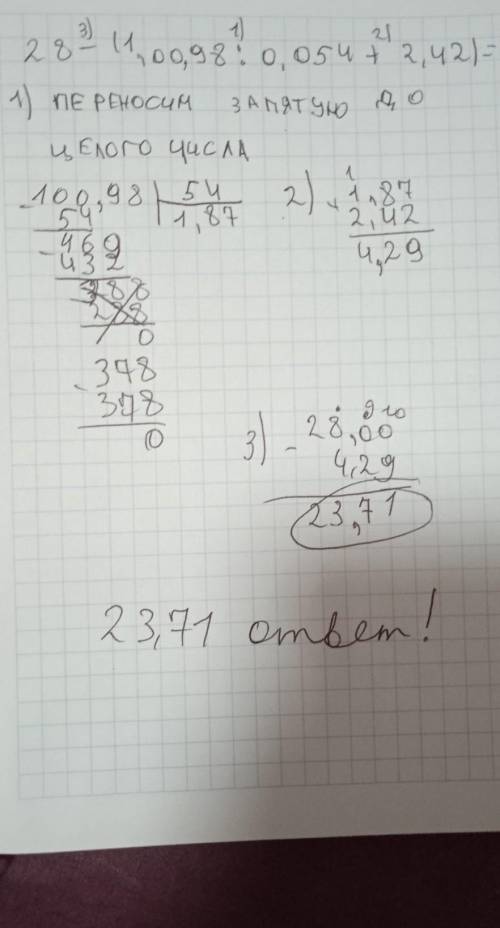 28 - (1,00,98 : 0,054 + 2,42) =
3) 1) 2)
1) ПЕРЕНОСИМ ЗАПЯТУЮ ДО
ЦЕЛОГО ЧИСЛА
-100,98 | 54
54 | 1,87
-469
432
388
288
0
-378
378
0
2) +1,87
1
2,42
4,29
3) -28,00
9 10
4,29
23,71
23,71 ответ!